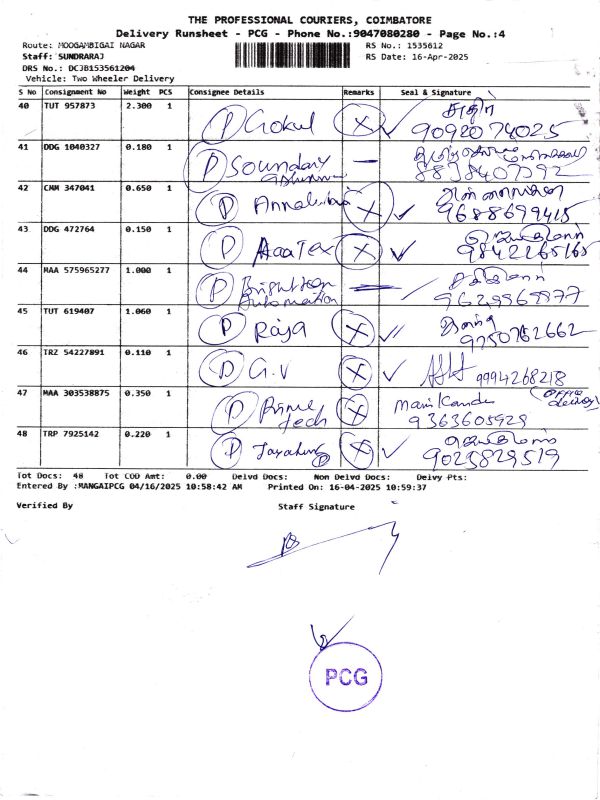 THE PROFESSIONAL COURIERS, COIMBATORE
Delivery Runsheet - PCG - Phone No.:9047080280 - Page No.:4
Route: MOOGAMBIGAI NAGAR RS No.: 1535612
Staff: SUNDRARAJ RS Date: 16-Apr-2025
DRS No.: DCJB153561204
Vehicle: Two Wheeler Delivery
S No Consignment No Weight PCS Consignee Details Remarks Seal & Signature
40 TUT 957873 2.300 1 P Gokul X 9092074025
41 DDG 1040327 0.180 1 P Soundary
42 CMM 347041 0.650 1 P X 9688699415
43 DDG 472764 0.150 1 P X 9842265165
44 MAA 575965277 1.000 1 P Automation
45 TUT 619407 1.060 1 P Raja X 9750762662
46 TRZ 54227891 0.110 1 P G.V X 9994268218
47 MAA 303538875 0.350 1 P Prime Tech X Mani Kandan 9363605929 (Office
48 TRP 7925142 0.220 1 P X 9025829519
Tot Docs: 48 Tot COD Amt: 0.00 Delvd Docs: Non Delvd Docs: Delvy Pts:
Entered By :MANGAIPCG 04/16/2025 10:58:42 AM Printed On: 16-04-2025 10:59:37
Verified By Staff Signature
PCG